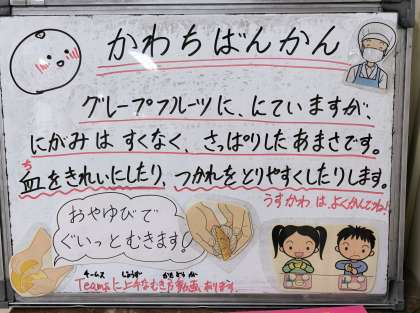 かわちばんかん
グレープフルーツに、にていますが、
にがみは すくなく、さっぱりしたあまさです。
血をきれいにしたり、つかれをとりやすくしたりします。
ち
うすかわ は よくかんでね！
おやゆびで
ぐいっとむきます！
チームス じょうず かた どうが
Teamsに上手なむき方動画あります。